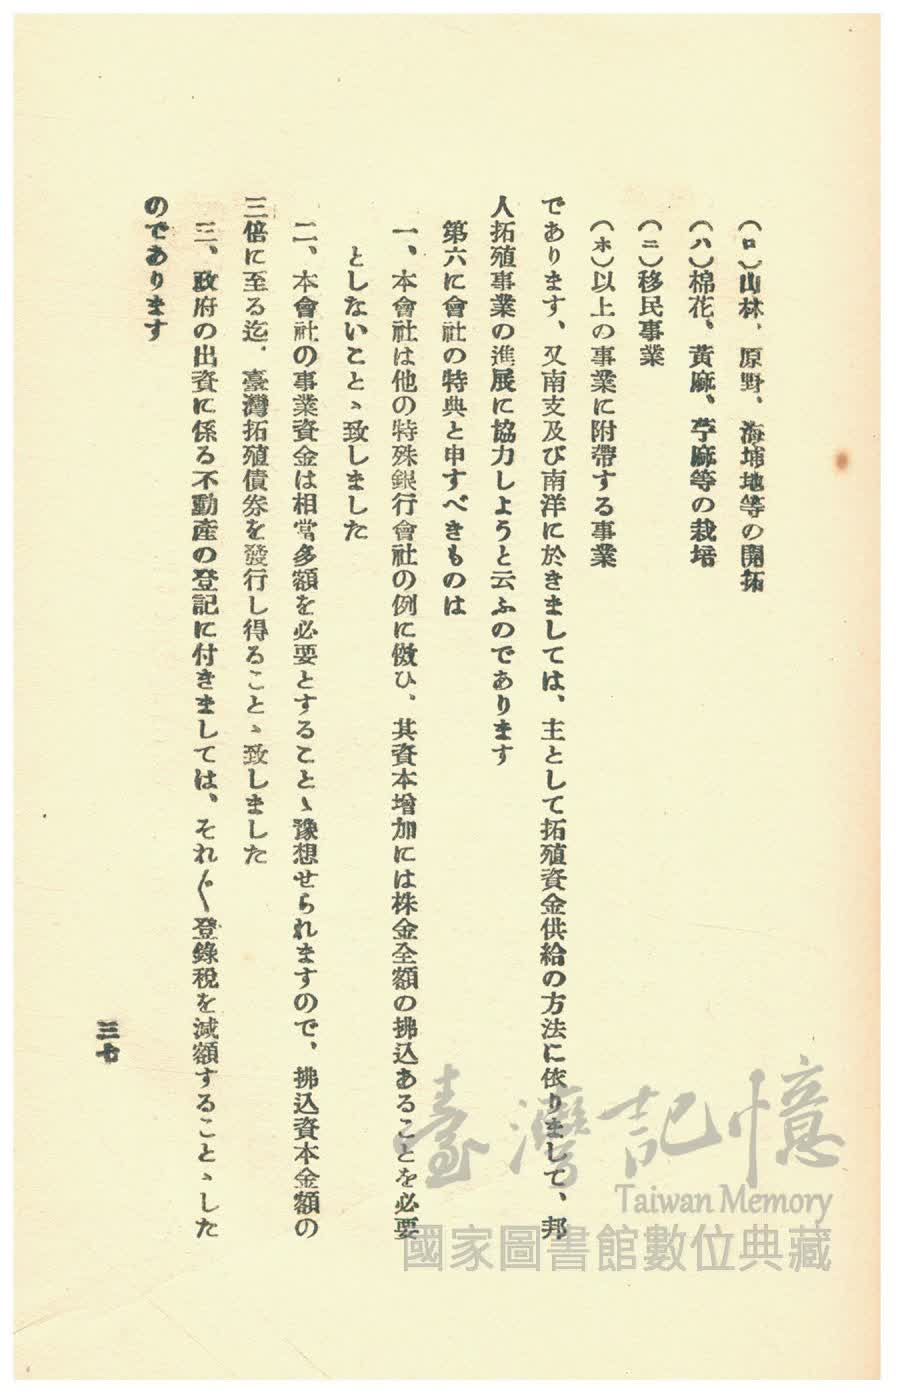 (ロ)山林、原野、海埔地等の開拓
(ハ)棉花、黃麻、苧麻等の栽培
(ニ)移民事業
(ホ)以上の事業に附帶する事業
であります、又南支及び南洋に於きましては、主として拓殖資金供給の方法に依りまして、邦
人拓殖事業の進展に協力しようと云ふのであります
第六に會社の特典と申すべきものは
一、本會社は他の特殊銀行會社の例に倣ひ、其資本增加には株金全額の拂込あることを必要
としないことゝ致しました
二、本會社の事業資金は相當多額を必要とすることゝ豫想せられますので、拂込資本金額の
三倍に至る迄、臺灣拓殖債券を發行し得ることゝ致しました
三、政府の出資に係る不動產の登記に付きましては、それ〲登錄稅を減額することゝした
のであります
三七
臺灣記憶
Taiwan Memory
國家圖書館數位典藏